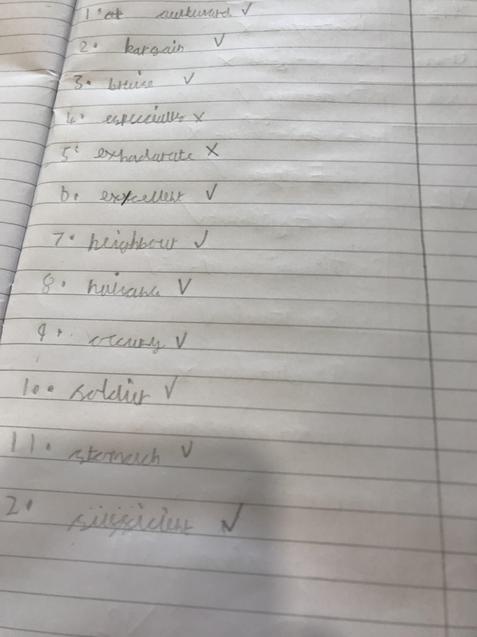 1. at awkward ✓
2. bargain ✓
3. bruise ✓
4. especially ×
5. exhadarate ×
6. excellent ✓
7. neighbour ✓
8. ✓
9. ✓
10. soldier ✓
11. stomach ✓
2. ✓